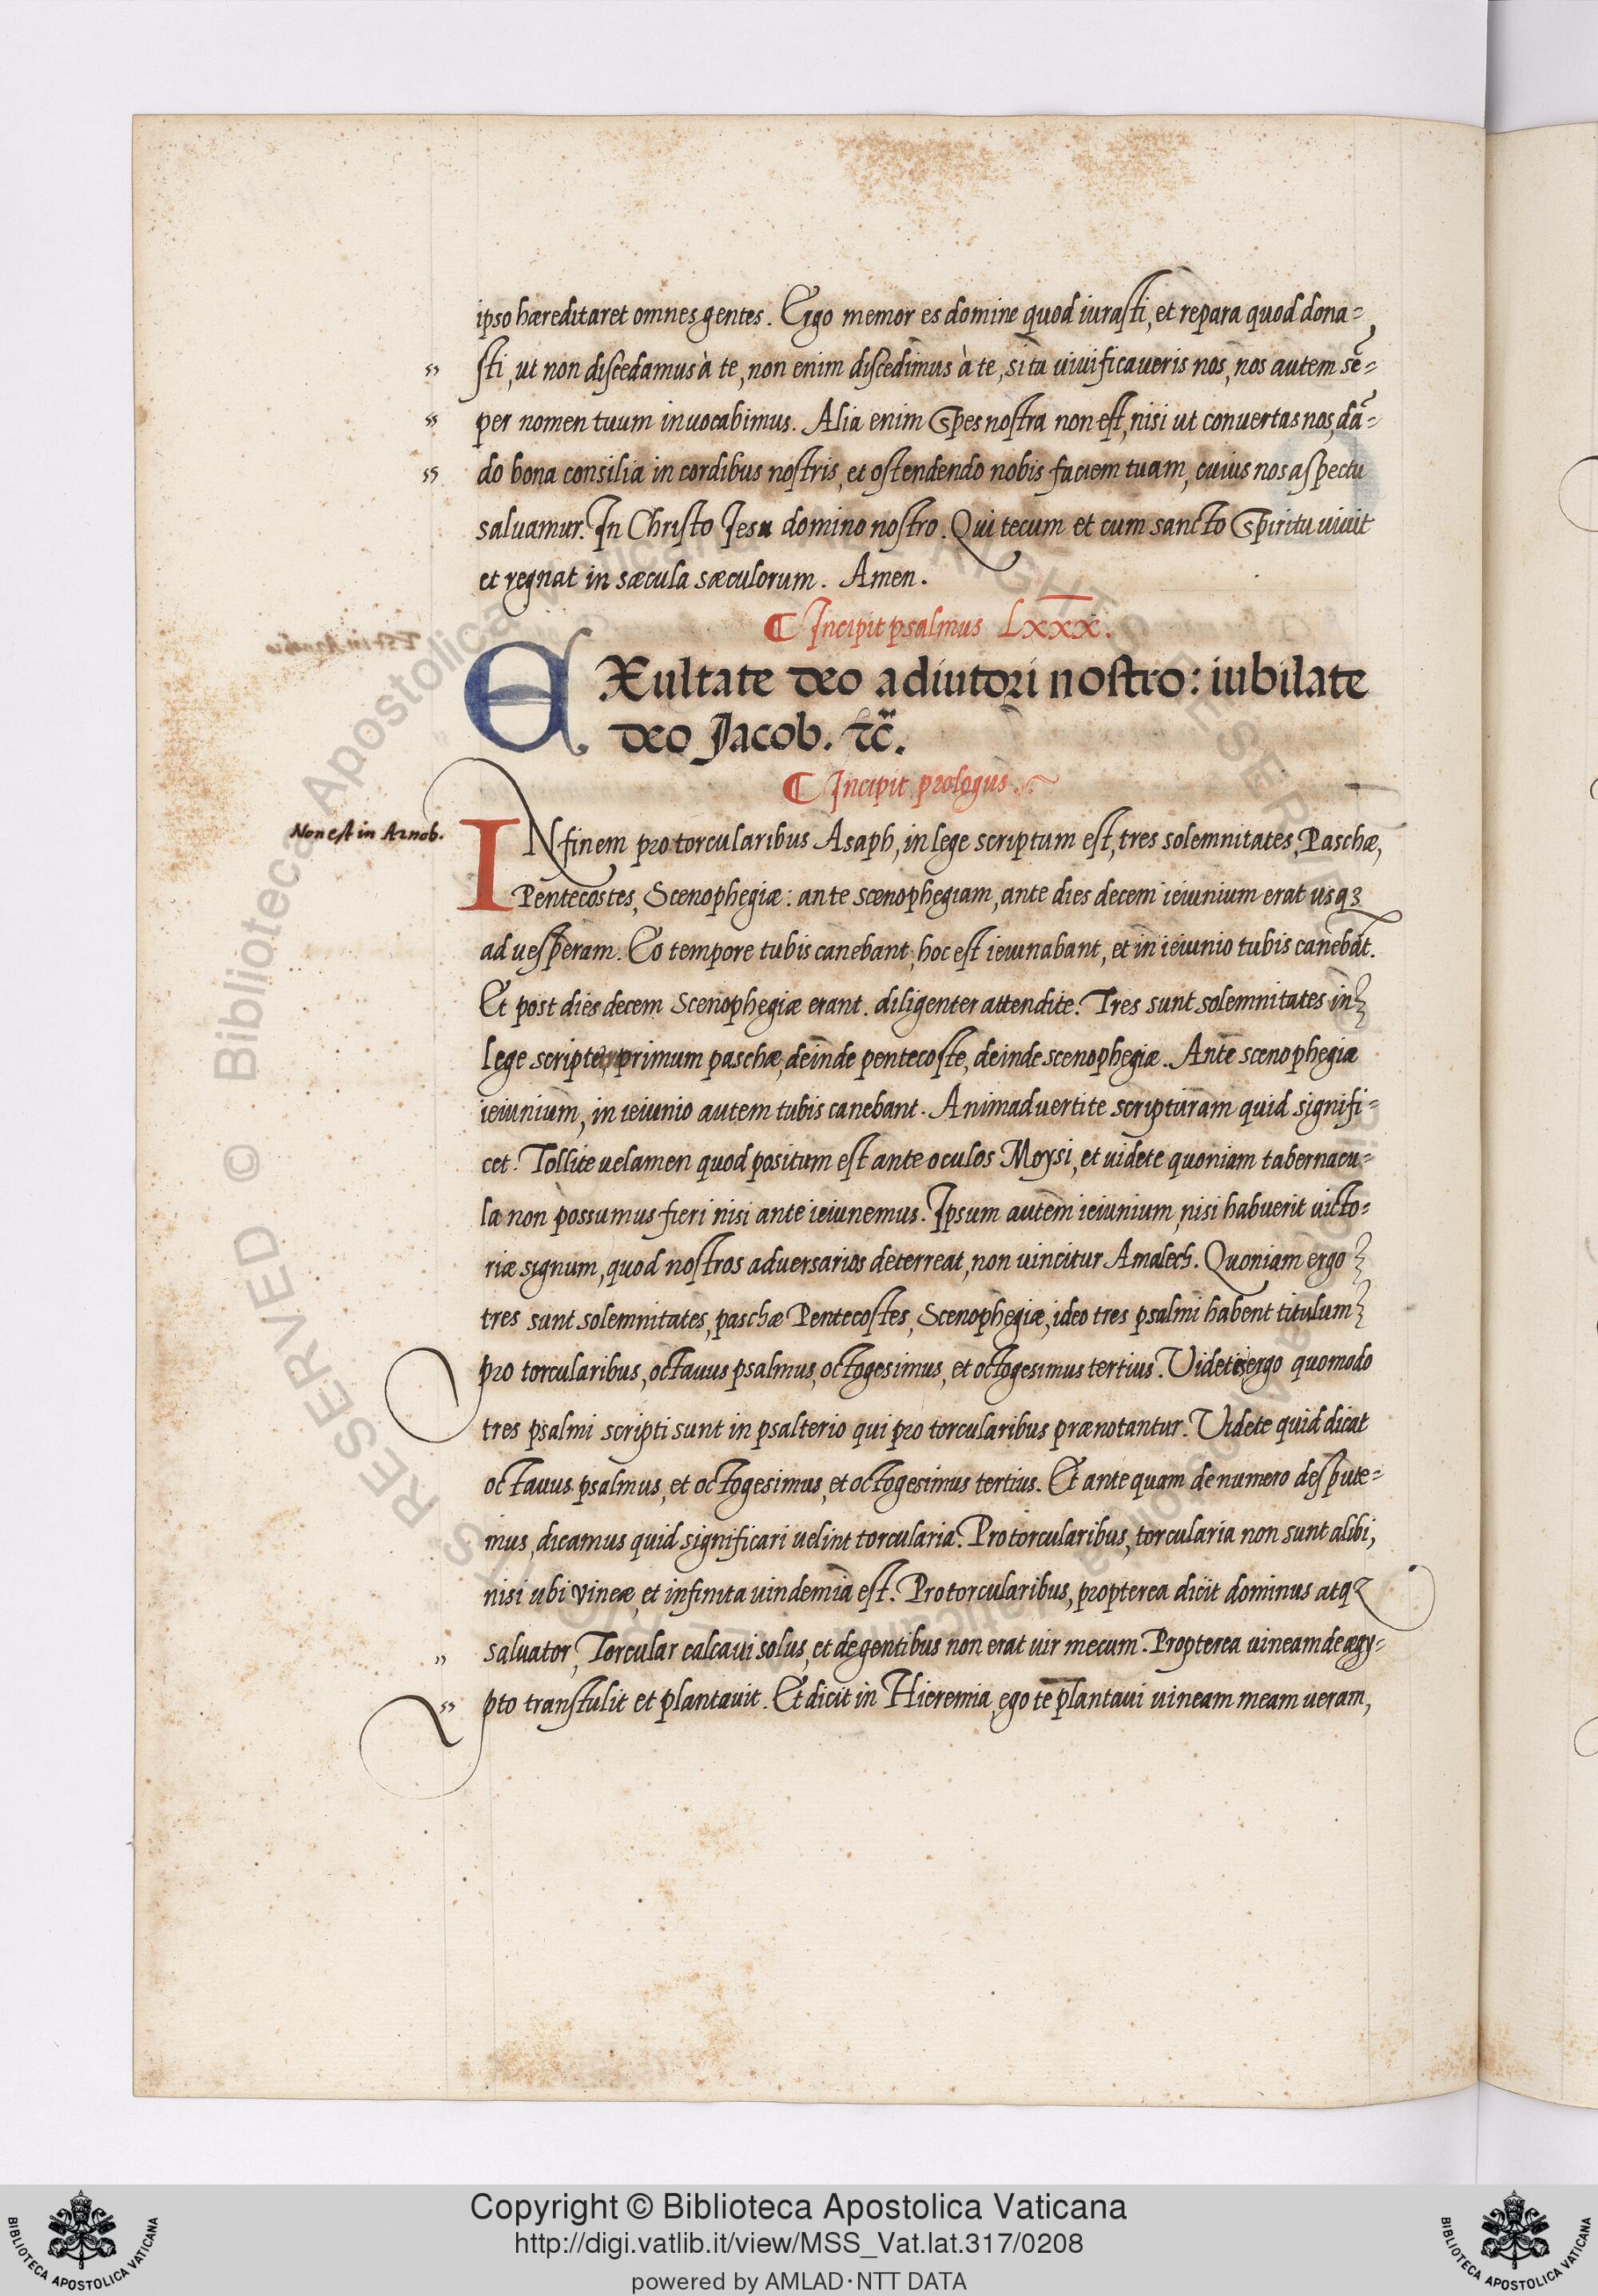 ipso hæreditaret omnes gentes. Ergo memor es domine quod iurasti, et repara quod dona=
sti, ut non discedamus à te, non enim discedimus à te, si tu viuificaueris nos, nos autem sē=
per nomen tuum inuocabimus. Alia enim spes nostra non est, nisi ut conuertas nos, dā=
do bona consilia in cordibus nostris, et ostendendo nobis faciem tuam, cuius nos aspectu
saluamur. In Christo Iesu domino nostro. Qui tecum et cum sancto spiritu uiuit
et regnat in sæcula sæculorum. Amen.
¶ Incipit psalmus Lxxx.
EXultate deo adiutori nostro: iubilate
deo Jacob. ⁊c̄.
¶ Incipit prologus.
Non est in Arnob.
IN finem pro torcularibus Asaph, in lege scriptum est, tres solemnitates, Paschæ,
Pentecostes, Scenophegiæ: ante scenophegiam, ante dies decem ieiunium erat usqꝫ
ad uesperam. Eo tempore tubis canebant, hoc est ieiunabant, et in ieiunio tubis canebāt.
Et post dies decem Scenophegiæ erant. diligenter attendite. Tres sunt solemnitates in
lege scriptæ, primum paschæ, deinde pentecoste, deinde scenophegiæ. Ante scenophegiæ
ieiunium, in ieiunio autem tubis canebant. Animaduertite scripturam quid signifi=
cet. Tollite uelamen quod positum est ante oculos Moysi, et uidete quoniam tabernacu=
la non possumus fieri nisi ante ieiunemus. Ipsum autem ieiunium, nisi habuerit uicto=
riæ signum, quod nostros aduersarios deterreat, non uincitur Amalech. Quoniam ergo
tres sunt solemnitates, paschæ Pentecostes, Scenophegiæ, ideo tres psalmi habent titulum
pro torcularibus, octauus psalmus, octogesimus, et octogesimus tertius. Videtis ergo quomodo
tres psalmi scripti sunt in psalterio qui pro torcularibus prænotantur. Videte quid dicat
octauus psalmus, et octogesimus, et octogesimus tertius. Et ante quam de numero despute=
mus, dicamus quid significari uelint torcularia. Pro torcularibus, torcularia non sunt alibi,
nisi ubi vineæ, et infinita uindemia est. Pro torcularibus, propterea dicit dominus atqꝫ
saluator, Torcular calcaui solus, et de gentibus non erat uir mecum. Propterea uineam de ægy=
pto transtulit et plantauit. Et dicit in Hieremia, ego te plantaui uineam meam ueram,
Copyright © Biblioteca Apostolica Vaticana
http://digi.vatlib.it/view/MSS_Vat.lat.317/0208
powered by AMLAD·NTT DATA
BIBLIOTECA APOSTOLICA VATICANA
BIBLIOTECA APOSTOLICA VATICANA